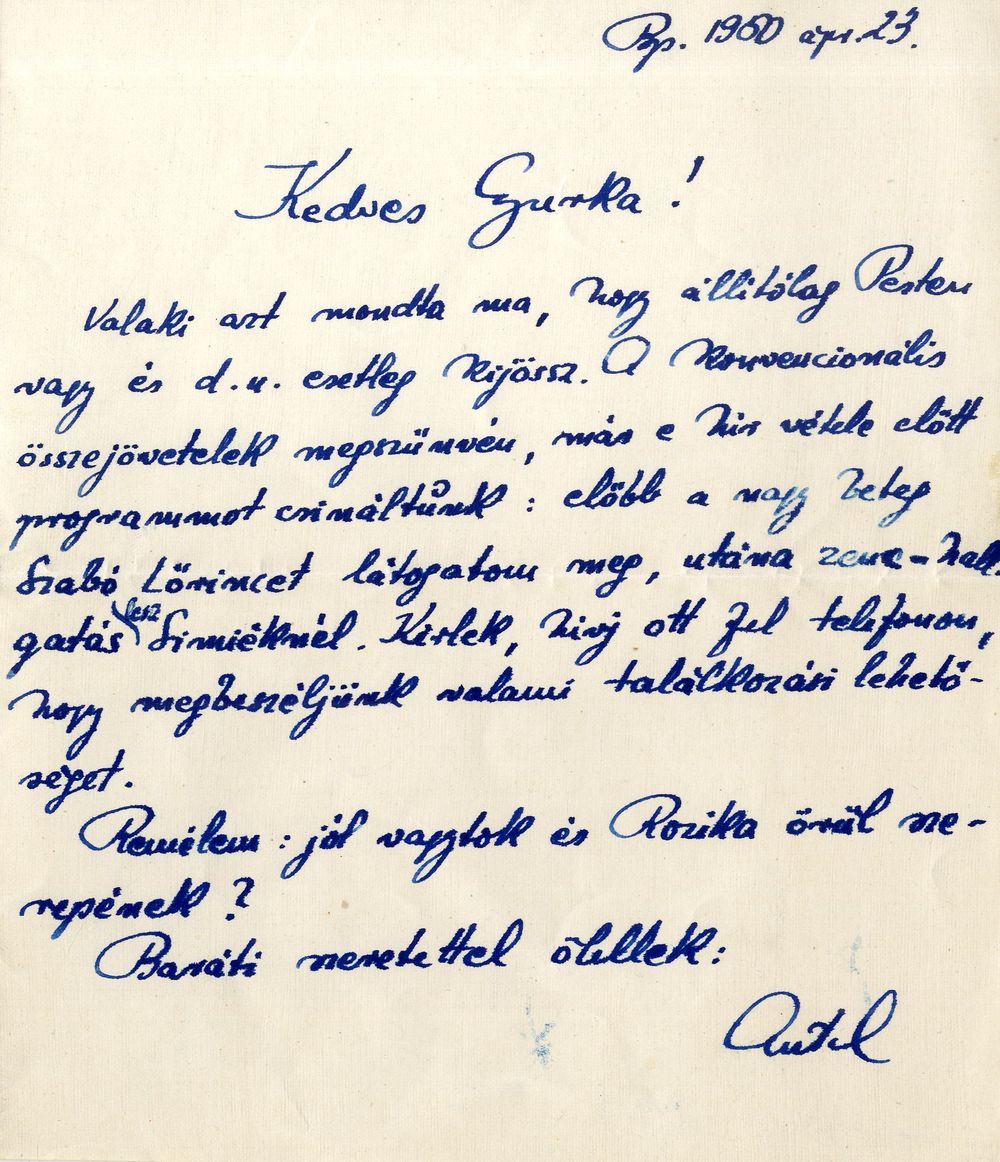 Bp. 1950 ápr. 23.
Kedves Gyurka!
Valaki azt mondta ma, hogy állitólag Pesten
vagy és d.u. esetleg kijössz. A konvencionális
összejövetelek megszünvén, már e hir vétele előtt
programmot csináltunk: előbb a nagy beteg
Szabó Lőrincet látogatom meg, utána zene-hall-
gatás lesz Simiéknél. Kérlek, hivj ott fel telefonon,
hogy megbeszéljünk valami találkozási lehető-
séget.
Remélem: jól vagytok és Rozika örül sze-
repének?
Baráti szeretettel ölellek:
Antal